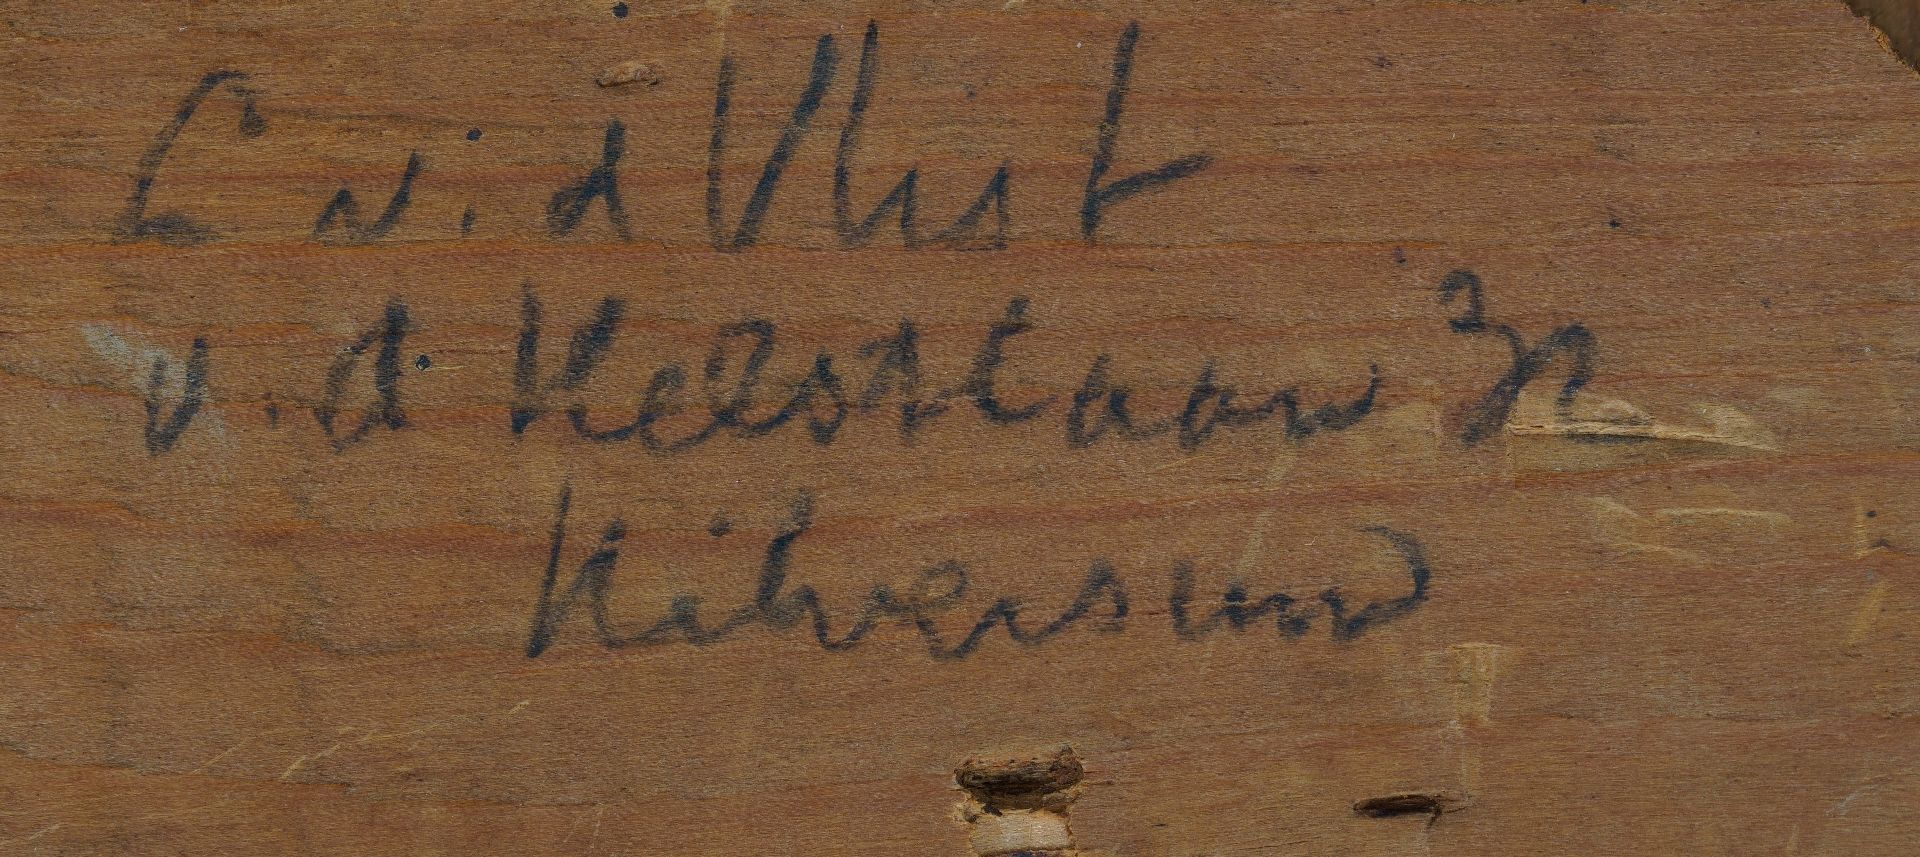 L v. d Vlist
v. d Heestlaan 32
Hilversum